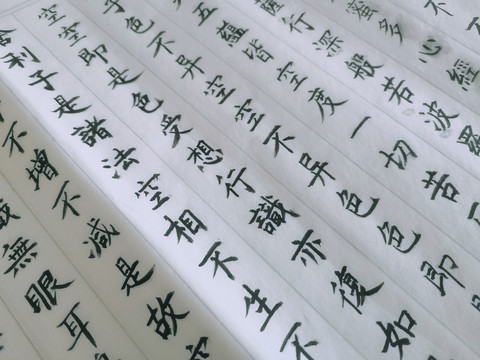 蜜多心經
行深般若波羅
五蘊皆空度一切苦
子色不異空空不異色色即是
空空即是色受想行識亦復如
舍利子是諸法空相不生不
不增不減是故空
無眼耳